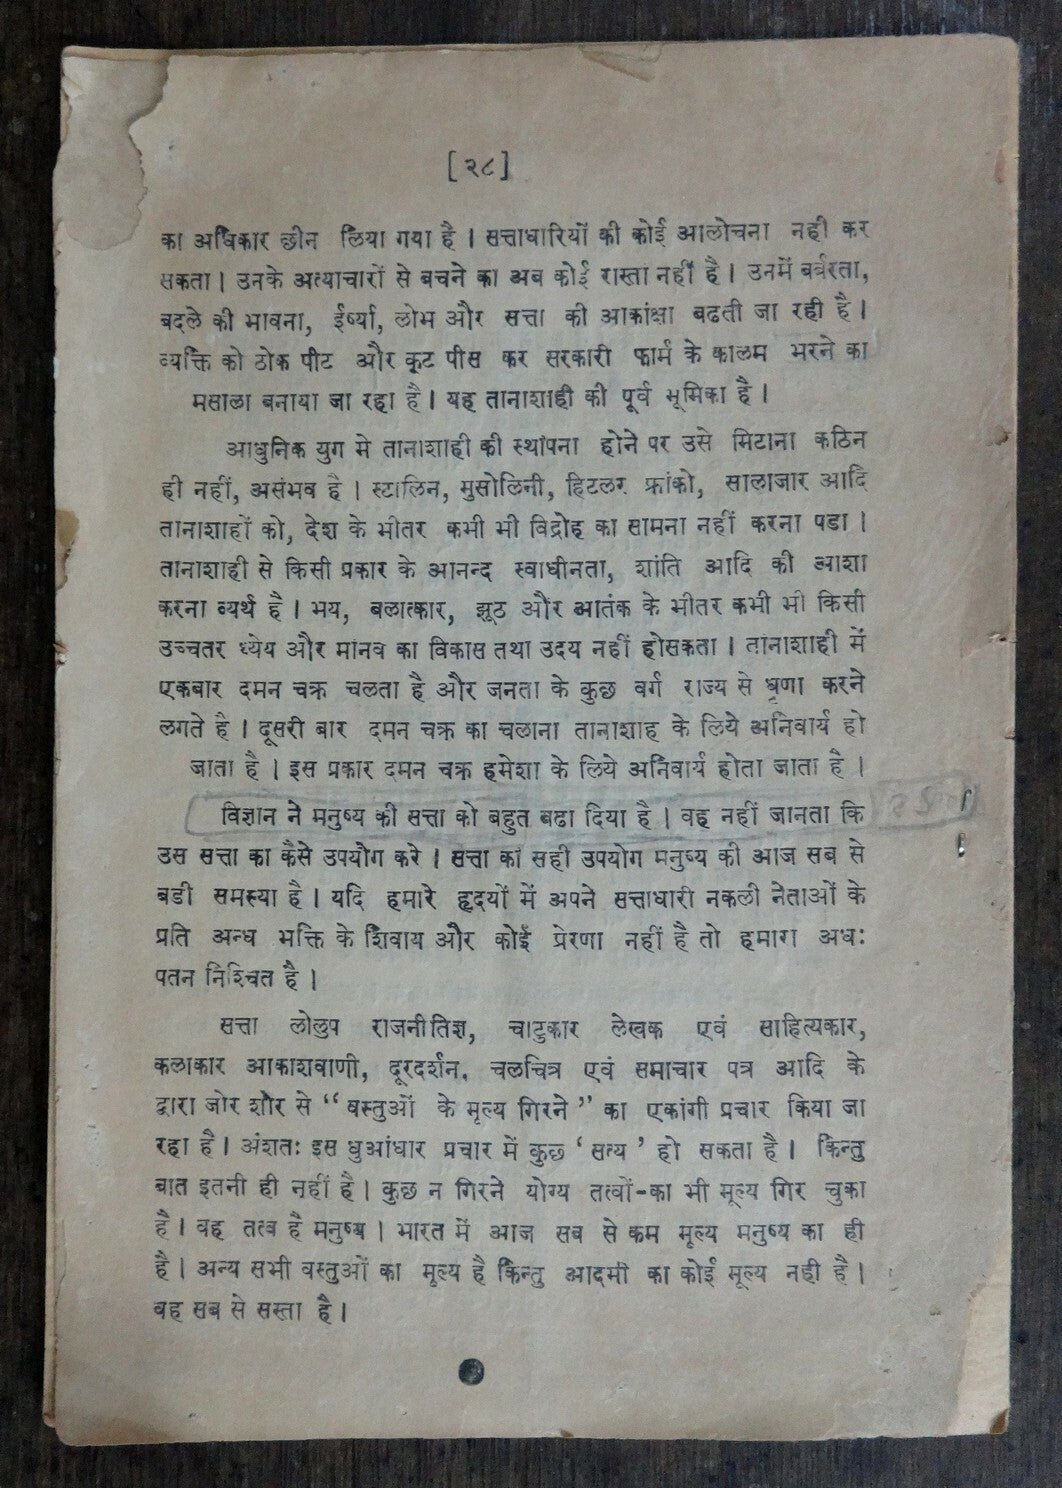 [२८]
का अधिकार छीन लिया गया है । सत्ताधारियों की कोई आलोचना नही कर
सकता । उनके अत्याचारों से बचने का अब कोई रास्ता नहीं है । उनमें बर्बरता,
बदले की भावना, ईर्ष्या, लोभ और सत्ता की आकांक्षा बढती जा रही है ।
व्यक्ति को ठोक पीट और कूट पीस कर सरकारी फार्म के कालम भरने का
मसाला बनाया जा रहा है । यह तानाशाही की पूर्व भूमिका है ।
आधुनिक युग मे तानाशाही की स्थापना होने पर उसे मिटाना कठिन
ही नहीं, असंभव है । स्टालिन, मुसोलिनी, हिटलर फ्रांको, सालाजार आदि
तानाशाहों को, देश के भीतर कभी भी विद्रोह का सामना नहीं करना पडा ।
तानाशाही से किसी प्रकार के आनन्द स्वाधीनता, शांति आदि की आशा
करना व्यर्थ है । भय, बलात्कार, झूठ और आतंक के भीतर कभी भी किसी
उच्चतर ध्येय और मानव का विकास तथा उदय नहीं होसकता । तानाशाही में
एकबार दमन चक्र चलता है और जनता के कुछ वर्ग राज्य से घृणा करने
लगते है । दूसरी बार दमन चक्र का चलाना तानाशाह के लिये अनिवार्य हो
जाता है । इस प्रकार दमन चक्र हमेशा के लिये अनिवार्य होता जाता है ।
विज्ञान ने मनुष्य की सत्ता को बहुत बढा दिया है । वह नहीं जानता कि
उस सत्ता का कैसे उपयोग करे । सत्ता का सही उपयोग मनुष्य की आज सब से
बडी समस्या है । यदि हमारे हृदयों में अपने सत्ताधारी नकली नेताओं के
प्रति अन्ध भक्ति के शिवाय और कोई प्रेरणा नहीं है तो हमारा अधः
पतन निश्चित है ।
सत्ता लोलुप राजनीतिज्ञ, चाटुकार लेखक एवं साहित्यकार,
कलाकार आकाशवाणी, दूरदर्शन, चलचित्र एवं समाचार पत्र आदि के
द्वारा जोर शोर से “ वस्तुओं के मूल्य गिरने ” का एकांगी प्रचार किया जा
रहा है । अंशतः इस धुआंधार प्रचार में कुछ ‘ सत्य ’ हो सकता है । किन्तु
बात इतनी ही नहीं है । कुछ न गिरने योग्य तत्वों-का भी मूल्य गिर चुका
है । वह तत्व है मनुष्य । भारत में आज सब से कम मूल्य मनुष्य का ही
है । अन्य सभी वस्तुओं का मूल्य है किन्तु आदमी का कोई मूल्य नही है ।
वह सब से सस्ता है ।